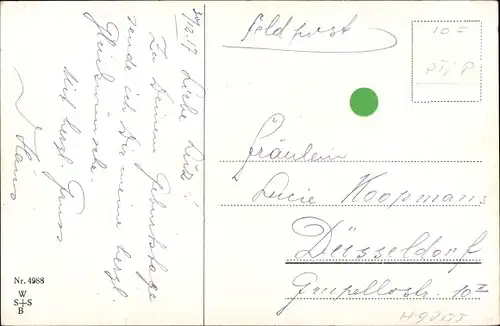 24/12.17
Liebe Luzi!
Zu Deinem Geburtstage
sende ich Dir meine herzl.
Glückwünsche.
Mit herzl. Gruss
Hans
Nr. 4988
W
S+S
B
Feldpost
10
Fräulein
Lucie Koopmans
Düsseldorf
Grupellostr. 10 I